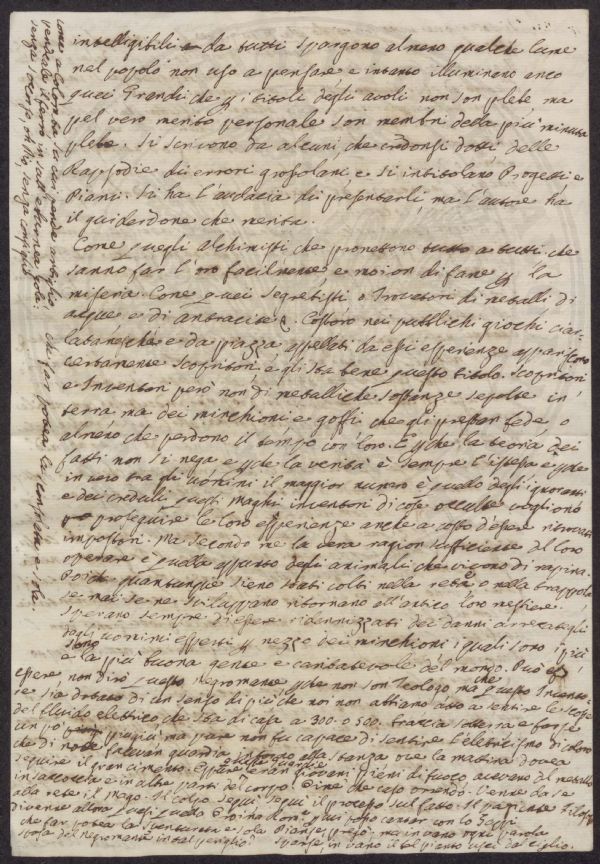 intelligibili da tutti spargono almeno qualche lume
nel popolo non uso a pensare e intanto illuminano anco
quei Grandi che p i titoli degli avoli non son plebe ma
pel vero merito personale son membri della più minuta
plebe. Si scrivono da alcuni che credonsi dotti delle
Rapsodie di errori grossolani e si intitolano Progetti e
Piani. Si ha l'audacia di presentarli, ma l'autore ha
il guiderdone che merita.
Come quegli Alchimisti che promettono tutto a tutti che
sanno far l'oro facilmente e moion di fame p la
miseria. Come quei segretisti o Trovatori di metalli di
acque e di antracite. Costoro nei pubblichi giochi ciar-
lataneschi e da piazza appellati da essi esperienze appariscono
certamente scopritori e gli sta bene questo titolo. Scopritori
e Inventori però non di metalliche sostanze sepolte in
terra ma dei minchioni e goffi che gli prestan fede, o
almeno che perdono il tempo con loro. E che la teoria dei
fatti non si nega e che la verità è sempre l'istessa e che
in vero tra gli uomini il maggior numero è quello degli ignoranti
e dei creduli questi maghi inventori di cose occulte vogliono
proseguire le loro esperienze anche a costo d'essere ritrovati
impostori. Ma secondo me la vera ragion sufficiente del loro
operare è quella appunto degli animali che vivono di rapina.
Poiché quantunque sieno stati colti nella rete o nella trappola
se mai se ne sviluppano ritornano all'antico loro mestiere.
Sperano sempre di essere ridennizzati dei danni arrecategli
dagli uomini esperti p mezzo dei minchioni i quali sono i più
e la più buona gente e caritatevole del mondo. Può
essere, non dirò questo negromante che non son Teologo ma che questo Invento-
re sia dotato di un senso di più che noi non abbiamo atto a sentire le scosse
del fluido elettrico che sta di casa a 300. o 500. braccia sotterra e forse
un po più giù ma pare non fu capace di sentire l'elettricismo di coloro
che di notte facevan guardia intorno alla stanza ove la mattina dovea
seguire il gran cimento. Eppure eran giovani pieni di fuoco avevano del metallo
in saccoccia e in altre parti del corpo. Dine che caso orrendo. Venne da se
alla rete il mago. Si colpo seguì seguì il processo sul fatto. Il paziente Filosofo
divenne allora quasi quello e rovina donne qui può cantar con lo Zappi
che far potea la sventurata e sola Pianse, pregò, ma in vano ogni parola
sposa del negromante in tal periglio? Sparse, in vano il bel pianto uscì da ciglio.
che far potea la sventurata e sola
senza soccorso, oh Dio, senza consiglio